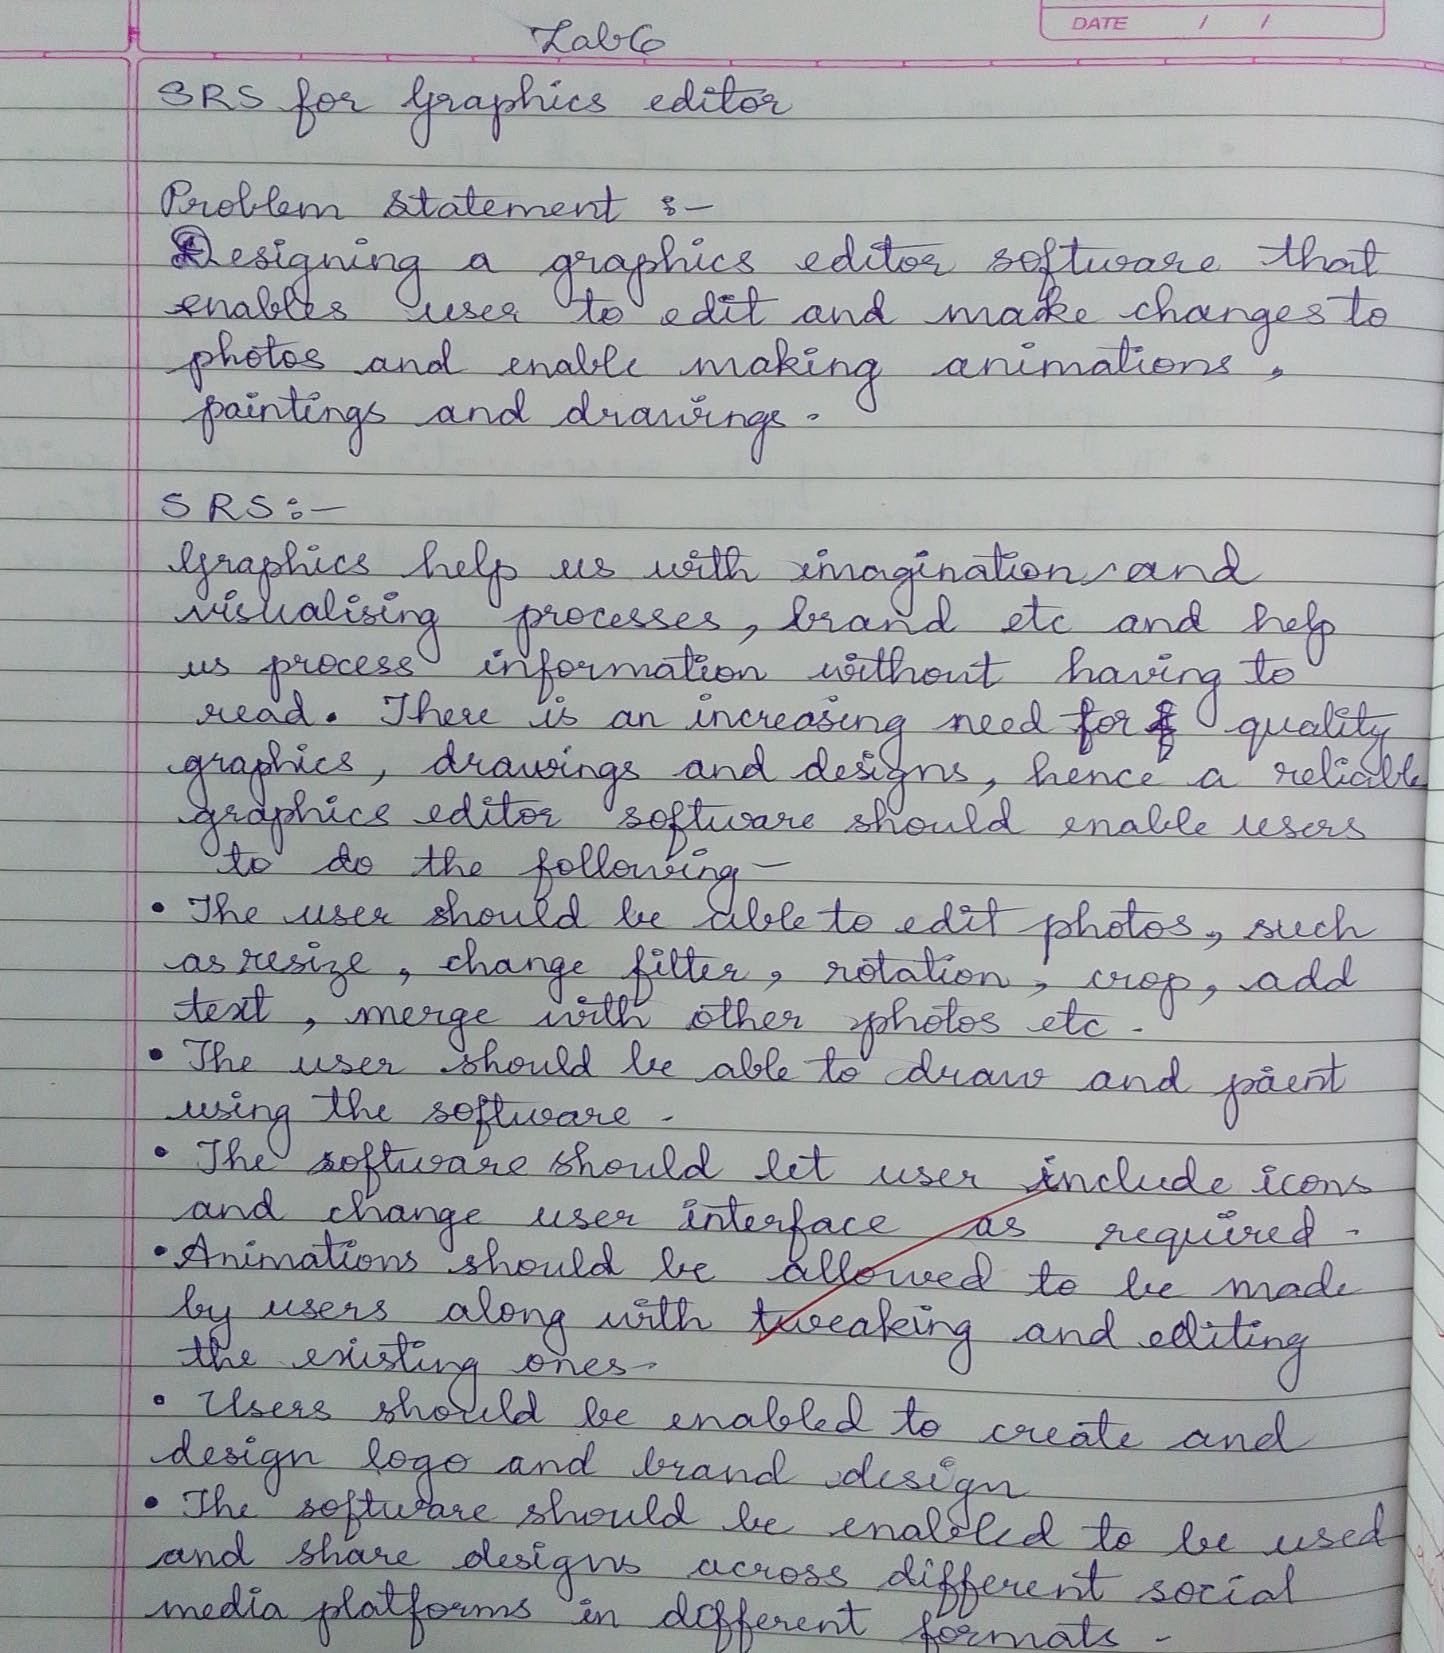 DATE / /
Lab 6
SRS for Graphics editor
Problem statement :-
Designing a graphics editor software that
enables user to edit and make changes to
photos and enable making animations,
paintings and drawings.
SRS :-
Graphics help us with imagination and
visualising processes, brand etc and help
us process information without having to
read. There is an increasing need for quality
graphics, drawings and designs, hence a reliable
graphics editor software should enable users
to do the following -
• The user should be able to edit photos, such
as resize, change filter, rotation, crop, add
text, merge with other photos etc.
• The user should be able to draw and paint
using the software.
• The software should let user include icons
and change user interface as required.
• Animations should be allowed to be made
by users along with tweaking and editing
the existing ones.
• Users should be enabled to create and
design logo and brand design
• The software should be enabled to be used
and share designs across different social
media platforms in different formats.